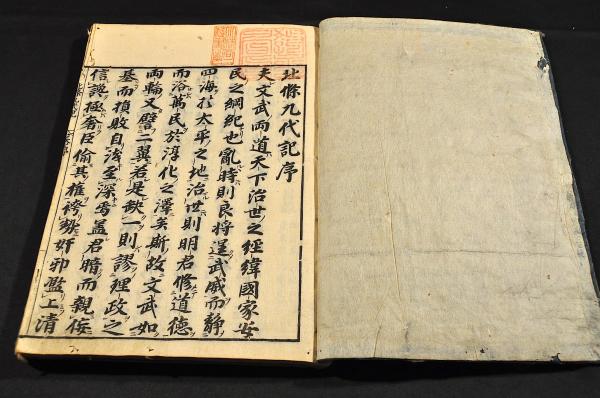 北條九代記序
夫文武両道天下治世之經緯國家安
民之綱紀也亂時則良將逞武威而靜
四海於太平之地治世則明君修道德
而浴萬民於淳化之澤矣斯故文武如
両輪又譬二翼若是缺一則謬理政之
基而損敗自淺至深焉蓋君暗而親侫
信讒極奢臣偷其権誇
奸邪濫上清